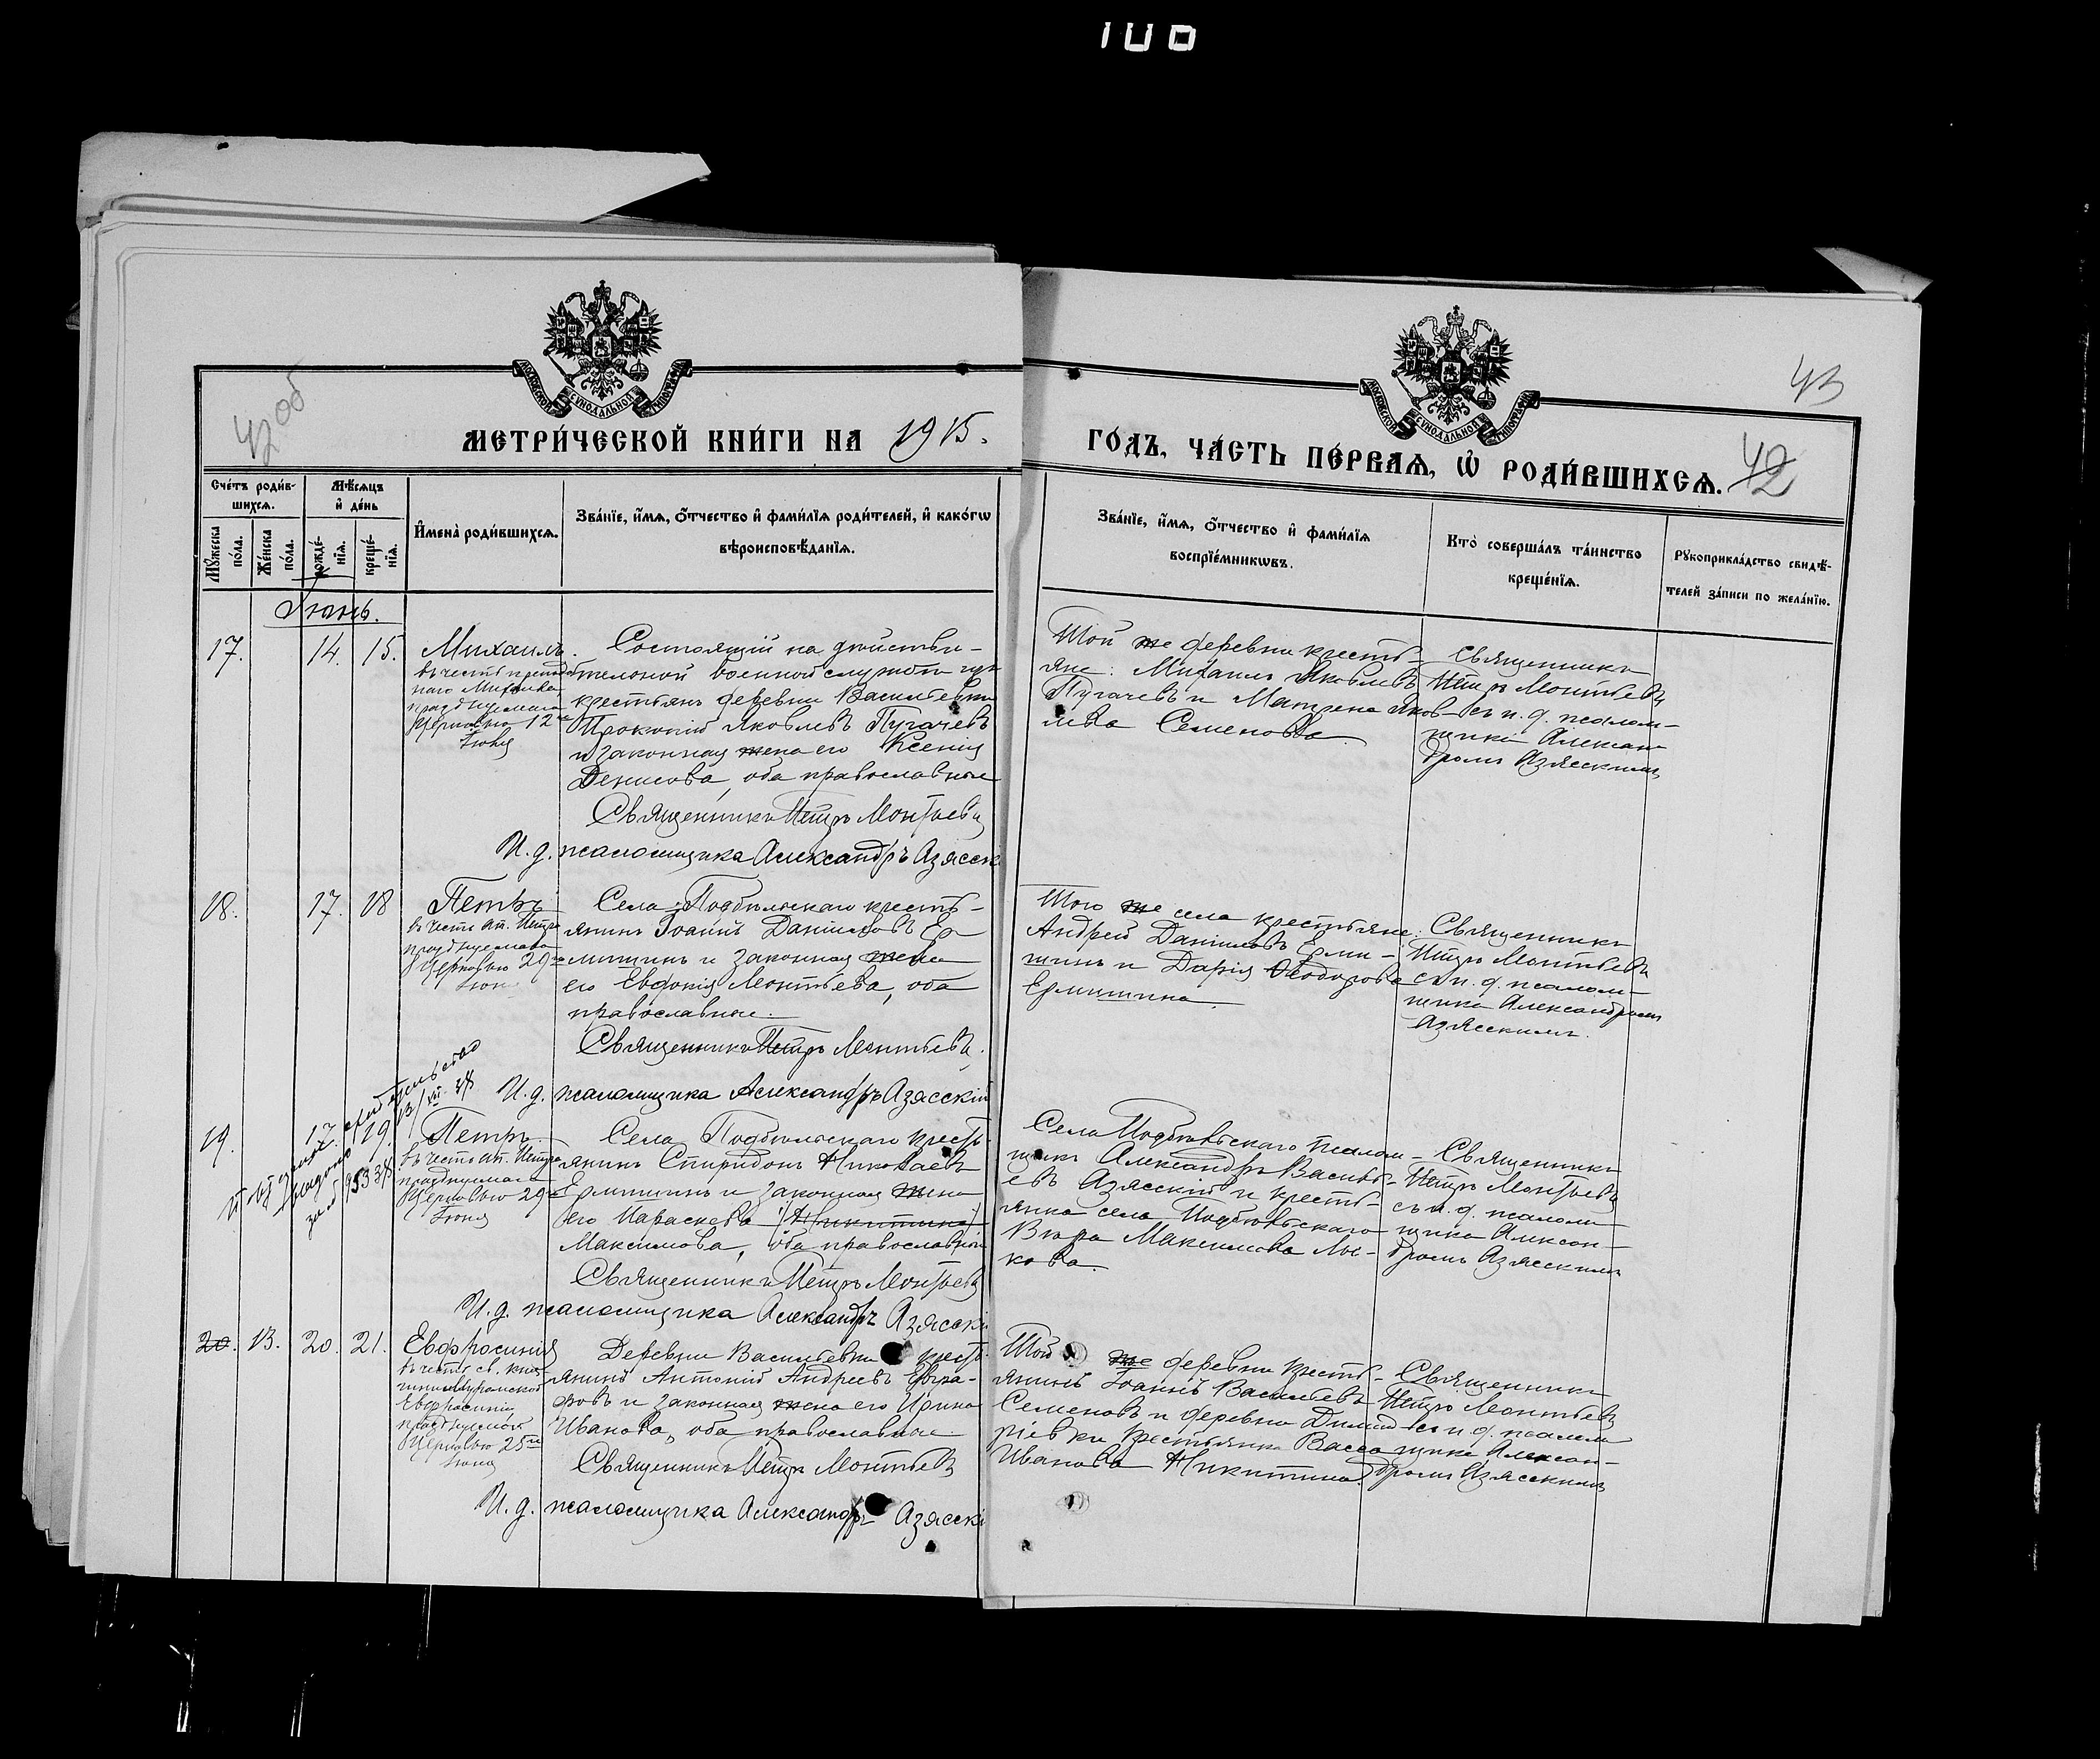 106
42 об
43
42
МОСКОВСКОЙ СѴНОДАЛЬНОЙ ТИПОГРАФІИ
МОСКОВСКОЙ СѴНОДАЛЬНОЙ ТИПОГРАФІИ
МЕТРИ́ЧЕСКОЙ КНИ́ГИ НА 1915.
ГО́ДЪ, ЧА́СТЬ ПЕ́РВАѦ, Ѡ҆ РОДИ́ВШИХСѦ.
Сче́тъ роди́в-
шихсѧ.
Мѣ́сѧцъ
и҆ де́нь
Мꙋ́жеска
по́ла.
Же́нска
по́ла.
рожде́-
нїѧ.
креще́-
нїѧ.
И҆мена̀ роди́вшихсѧ.
Зва́нїе, и҆́мѧ, ѻ҆́тчество и҆ фами́лїѧ роди́телей, и҆ како́гѡ
вѣроисповѣ́данїѧ.
Зва́нїе, и҆́мѧ, ѻ҆́тчество и҆ фами́лїѧ
воспрїе́мникѡвъ.
Кто̀ соверша́лъ та́инство
креще́нїѧ.
Рꙋкоприкла́дство свидѣ́-
телей за́писи по жела́нїю.
Іюнь.
17. 14. 15. Михаилъ.
въ честь препод.
наго Михаила
празднуемаго
Церковію 12го
Іюня
Состоящій на дѣйстви-
тельной военной службѣ
крестьянъ деревни Васильевки
Прокопій Яковлевъ Пугачевъ
и законная жена его Ксенія
Денисова, оба православные
Священникъ Петръ Монтьевъ
И. д. псаломщика Александръ Азясскі
Той же деревни кресть-
яне: Михаилъ Яковлевъ
Пугачевъ и Матрена Яков-
лева Семенова.
Священникъ
Петръ Монтьевъ
съ и. д. псалом-
щика Алексан-
дромъ Азясскимъ
18. 17. 18 Петръ
въ честь ап. Петра
празднуемаго
Церковію 29го
Іюня
Села Подбѣльскаго кресть-
янинъ Іоаннъ Даніиловъ Ер-
мишинъ и законная жена
его Евдокія Монтьева, оба
православные.
Священникъ Петръ Монтьевъ.
И. д. псаломщика Александръ Азясскій
Того же села крестьяне:
Андрей Даніиловъ Ерми-
шинъ и Дарія Ѳеодорова
Ермишина.
Священникъ
Петръ Монтьевъ
съ и. д. псалом-
щика Александромъ
Азясскимъ.
19. 17. 19. Петръ.
въ честь ап. Петра
празднуемаго
Церковію 29го
Іюня
Села Подбѣльскаго кресть-
янинъ Спиридонъ Николаевъ
Ермишинъ и законная жена
его Параскева (Никитина)
Максимова, оба православные
Священникъ Петръ Монтьевъ
И. д. псаломщика Александръ Азясскі
Села Подбѣльскаго псалом-
щикъ Александръ Василь-
евъ Азясскій и кресть-
янка села Подбѣльскаго
Вѣра Максимова Лы-
кова.
Священникъ
Петръ Монтьевъ
съ и. д. псалом-
щика Алексан-
дромъ Азясскимъ
20. 13. 20. 21. Евфросинія
въ честь св. кня-
гини Муромской
Евфросиніи
празднуемой
Церковію 25го
Іюня
Деревни Васильевки кресть-
янинъ Антоній Андреевъ
и законная жена его Ирина
Иванова, оба православные
Священникъ Петръ Монтьевъ
И. д. псаломщика Александръ Азясскі
Той же деревни кресть-
янинъ Іоаннъ Васильевъ
Семеновъ и деревни Димит-
ріевки крестьянка Васса
Иванова Никитина.
Священникъ
Петръ Монтьевъ
съ и. д. псалом-
щика Алексан-
дромъ Азясскимъ